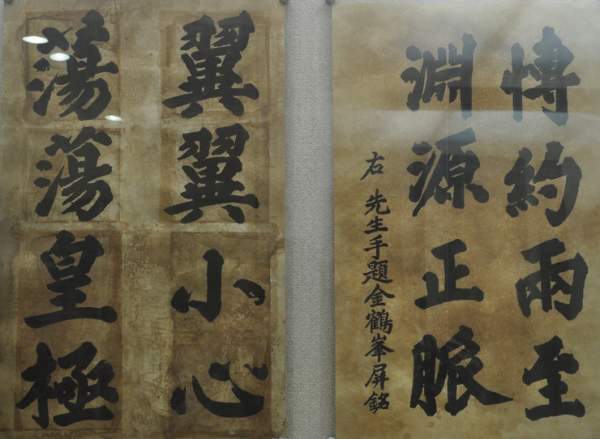 博約兩至
淵源正脈
右 先生手題金鶴峯屛銘
翼翼小心
蕩蕩皇極